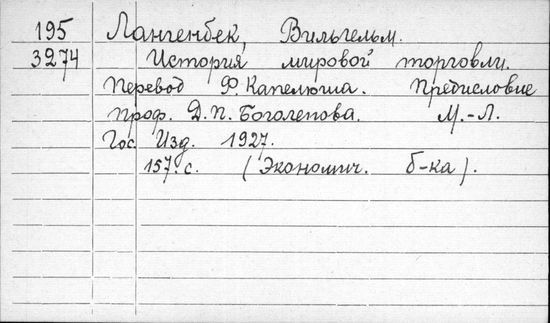 195 Лангенбек, Вильгельм.
3274 История мировой торговли.
Перевод Ф. Капелюша. Предисловие
проф. Д.П. Боголепова. М.-Л.
Гос. Изд. 1927.
157. с. (Экономич. б-ка).